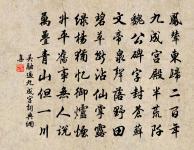 鳳輦東歸二百年
九成宮殿半荒阡
魏公碑字封蒼蘚
文帝泉聲落野田
碧草斷沾仙掌露
綠楊猶憶御爐煙
升平舊事無人說
萬疊青山但一川
吳融過九成宮